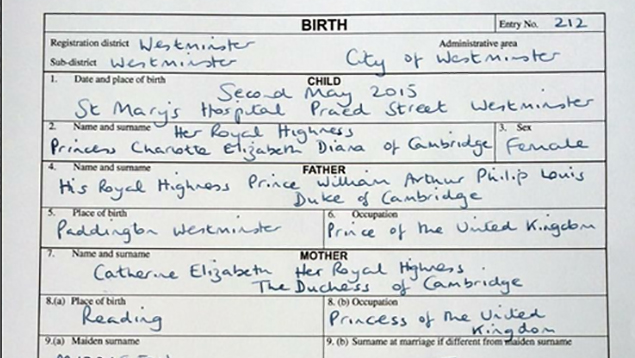 BIRTH Entry No. 212
Registration district Westminster Administrative area
Sub-district Westminster City of Westminster
1. Date and place of birth CHILD
Second May 2015
St Mary's Hospital Praed Street Westminster
2. Name and surname Her Royal Highness 3. Sex
Princess Charlotte Elizabeth Diana of Cambridge Female
4. Name and surname FATHER
His Royal Highness Prince William Arthur Philip Louis
Duke of Cambridge
5. Place of birth 6. Occupation
Paddington Westminster Prince of the United Kingdom
7. Name and surname MOTHER
Catherine Elizabeth Her Royal Highness
The Duchess of Cambridge
8.(a) Place of birth 8. (b) Occupation
Reading Princess of the United
Kingdom
9.(a) Maiden surname 9. (b) Surname at marriage if different from maiden surname